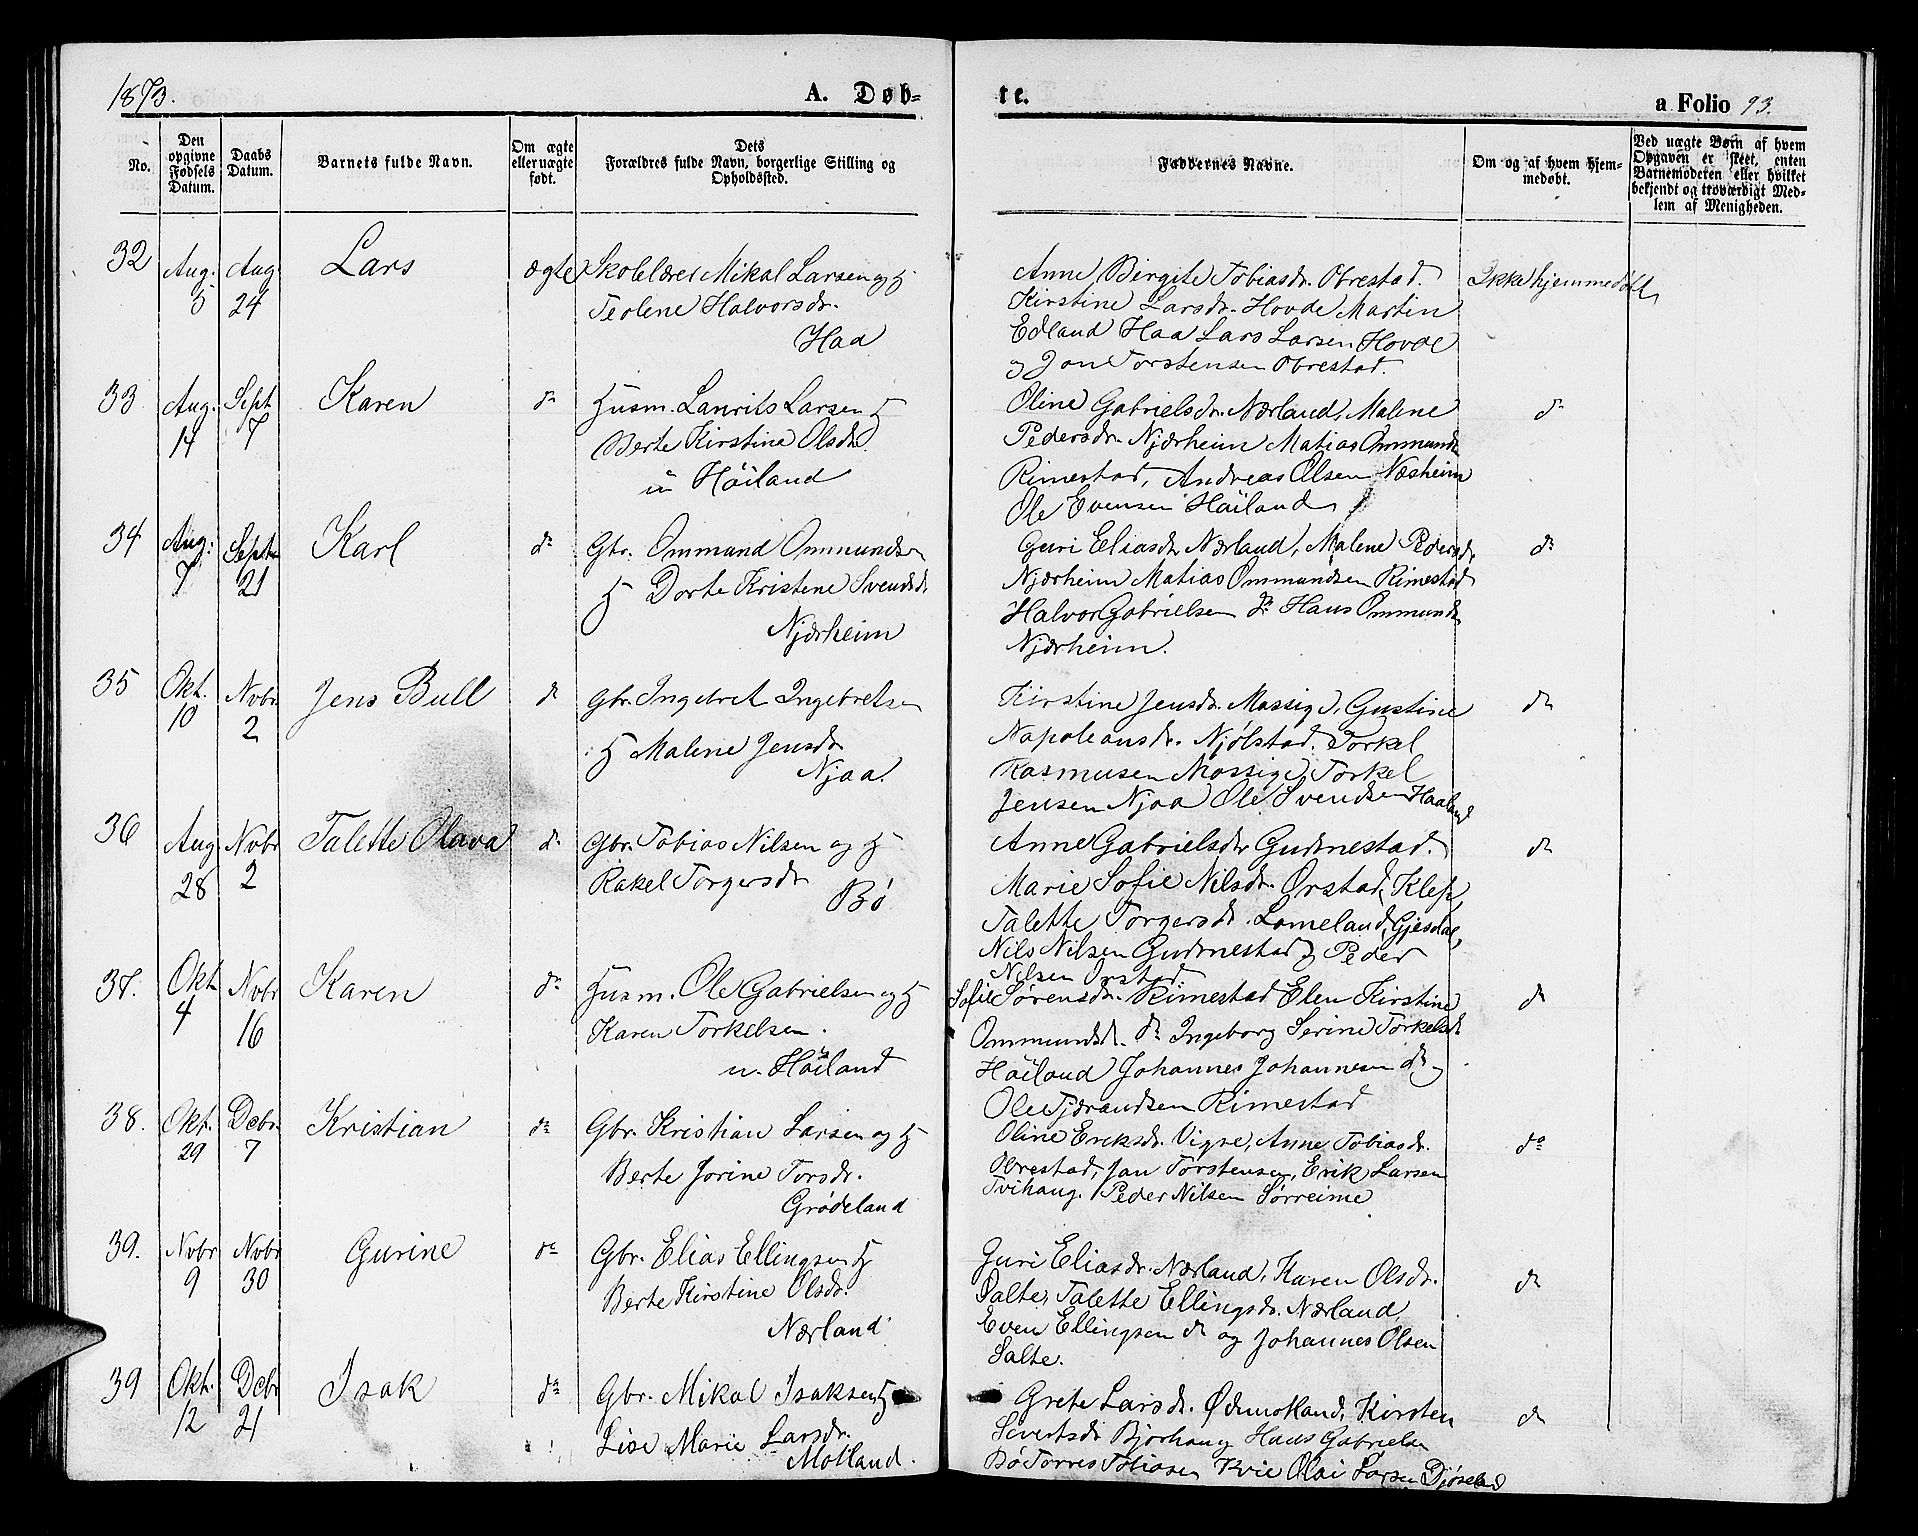 1873.
A. Døb-
te.
a Folio 93.
No.
Den opgivne Fødsels Datum.
Daabs Datum.
Barnets fulde Navn.
Om ægte eller uægte født.
Dets Forældres fulde Navn, borgerlige Stilling og Opholdssted.
Faddernes Navne.
Om og af hvem hjemmedøbt.
Ved uægte Børn af hvem Opgaven er skeet, enten Barnemoderen eller hvilket bekjendt og troværdigt Medlem af Menigheden.
32 Aug. 5 Aug 24 Lars ægte
Skolelærer Mikal Larsen og H
Teolene Halvorsdr.
Haa
Anne Birgite Tobiasdr. Obrestad.
Kirstine Larsdr. Hovde Martin
Edland Haa Lars Larsen Hovde
og Jon Torstensen Obrestad.
Ikke hjemmedøbt
33 Aug. 14 Sept 7 Karen do
Husm. Laurits Larsen H
Berte Kirstine Olsdr.
u Höiland
Oline Gabrielsdr. Nærland, Malene
Pedersdr. Njærheim Matias Ommunds
Rimestad, Andreas Olsen Næsheim
Ole Evensen Höiland
do
34 Aug: 7 Septr 21 Karl do
Gbr. Ommund Ommundsen
H Dorte Kristene Svendsd.
Njærheim
Guri Eliasdr Nærland, Malene Pedersdr
Njærheim Matias Ommundsen Rimestad
Halvor Gabrielsen do Hans Ommunds
Njærheim.
do
35 Okt. 10 Novbr 2 Jens Bull do
Gbr. Ingebret Ingebretsen
H Malene Jensdr
Njaa.
Kirstine Jensdr. Mossige, Gustine
Napoleonsdr. Njølstad. Torkel
Rasmusen Mossige, Torkel
Jensen Njaa Ole Svendsen Haaland
do
36 Aug 28 Novbr 2 Talette Olava do
Gbr. Tobias Nilsen og H
Rakel Torgersdr
Bö
Anne Gabrielsdr Gudmestad.
Marie Sofie Nilsdr. Orstad, Klep,
Talette Torgersdr. Lomeland, Gjesdal,
Nils Nilsen Gudmestad og Peder
Nilsen Orstad
do
37. Okt 4 Novbr 16 Karen do
Husm. Ole Gabrielsen og H
Karen Torkelsen.
u. Höiland
Sofie Sørensdr. Rimestad Elen Kirstine
Ommundsdr. do Ingeborg Serine Torkelsdr
Höiland Johannes Johannesen do og
Ole Tjærandsen Rimestad
do
38. Okt. 29 Decbr. 7 Kristian do
Gbr. Kristian Larsen og H
Berte Jorine Torsdr.
Grødeland
Oline Eriksdr. Vigre, Anne Tobiasdr.
Obrestad, Jan Torstensen, Erik Larsen
Tvihaug. Peder Nilsen Sörreime
do
39. Novbr 9 Novbr 30 Gurine do
Gbr. Elias Ellingsen H
Berte Kirstine Olsdr.
Nærland
Guri Eliasdr. Nærland, Karen Olsdr.
Salte, Talette Ellingsdr. Nærland,
Even Ellingsen do og Johannes Olsen
Salte.
do
39 Okt. 12 Decbr 21 Isak do
Gbr. Mikal Isaksen H
Lise Marie Larsdr.
Motland.
Grete Larsdr. Ødmotland, Kirsten
Sivertsdr Bjorhaug Hans Gabrielsen
Bö Torres Tobiasen Kvie Olai Larsen
do